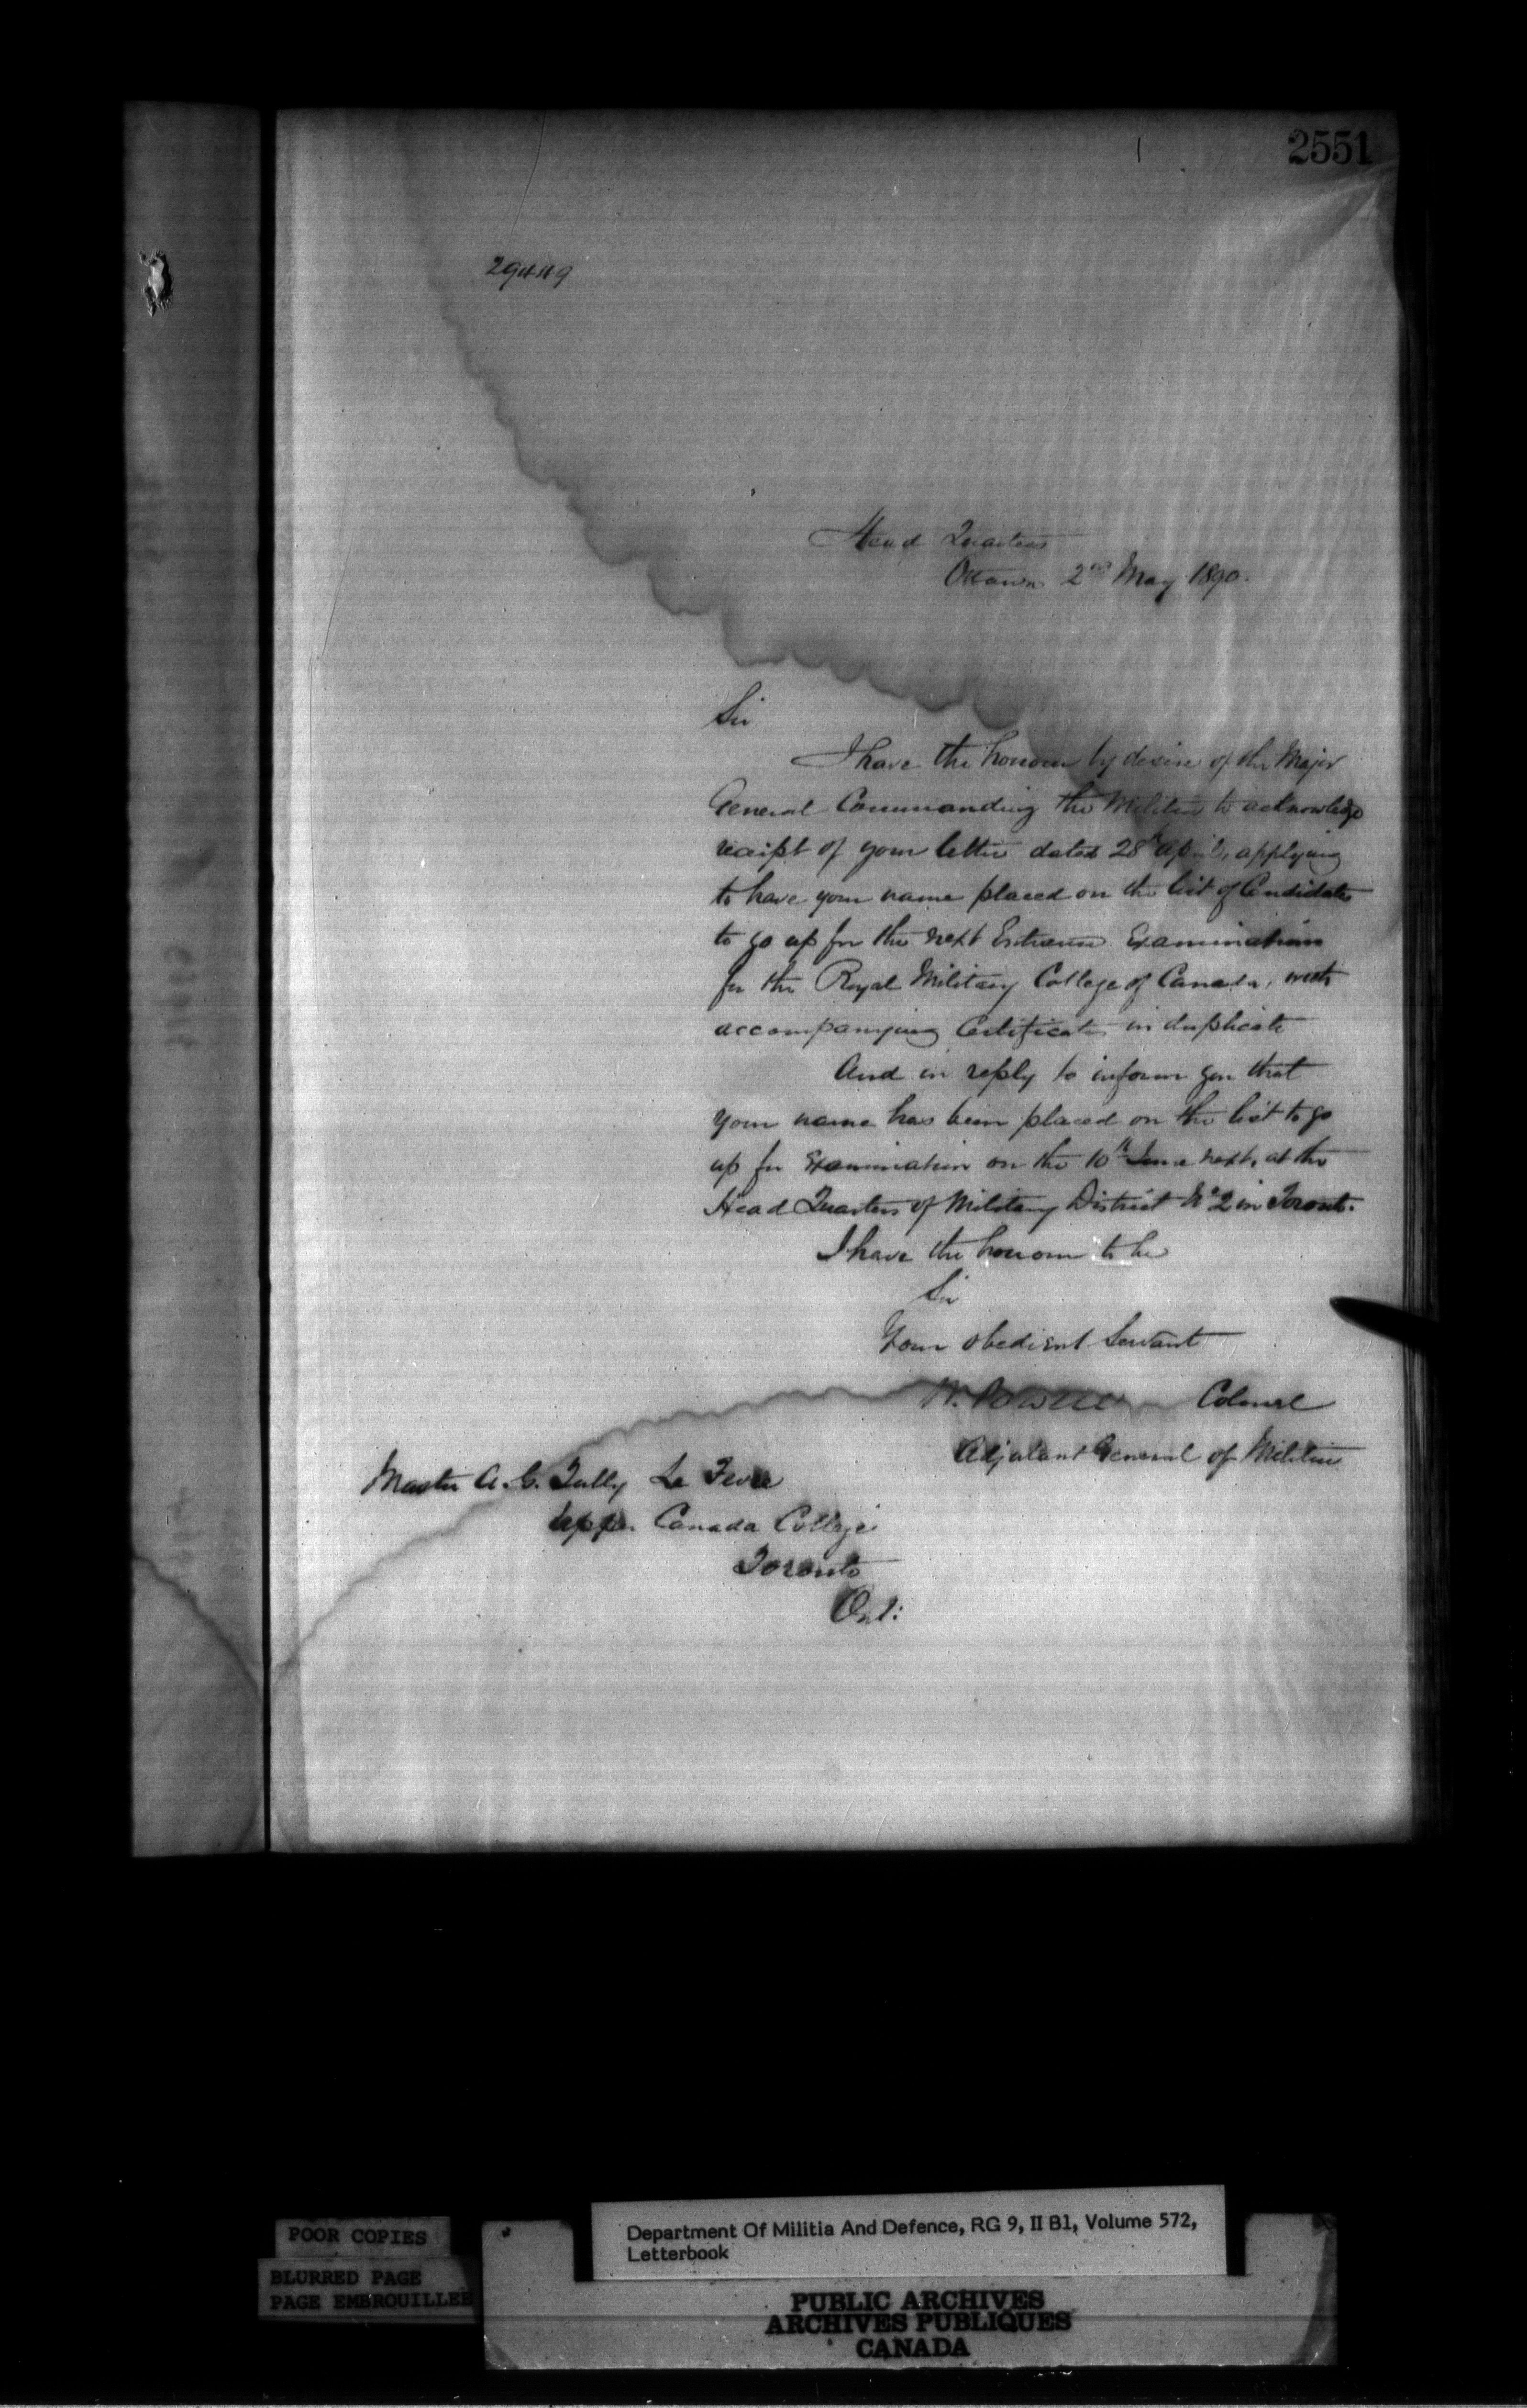 2551
29449
Head Quarters
Ottawa 2nd May 1890.
Sir
I have the honour by desire of the Major
General Commanding the Militia to acknowledge
receipt of your letter dated 28th April, applying
to have your name placed on the list of Candidates
to go up for the next Entrance Examination
for the Royal Military College of Canada, with
accompanying Certificates in duplicate
And in reply to inform you that
your name has been placed on the list to go
up for Examination on the 10th June next, at the
Head Quarters of Military District No 2 in Toronto.
I have the honour to be
Sir
Your obedient Servant
W. Powell Colonel
Adjutant General of Militia
Master A. C. Tully Le Fevre
Upper Canada College
Toronto
Ont:
POOR COPIES
BLURRED PAGE
PAGE EMBROUILLEE
Department Of Militia And Defence, RG 9, II B1, Volume 572,
Letterbook
PUBLIC ARCHIVES
ARCHIVES PUBLIQUES
CANADA